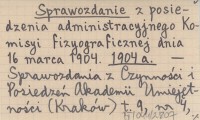 Sprawozdanie z posie-
dzenia administracyjnego Ko-
misyi fizyograficznej dnia
16 marca 1904. 1904 a. —
Sprawozdania z Czynności i
Posiedzeń Akademii Umiejęt-
ności (Kraków) t. 9, nr 4,